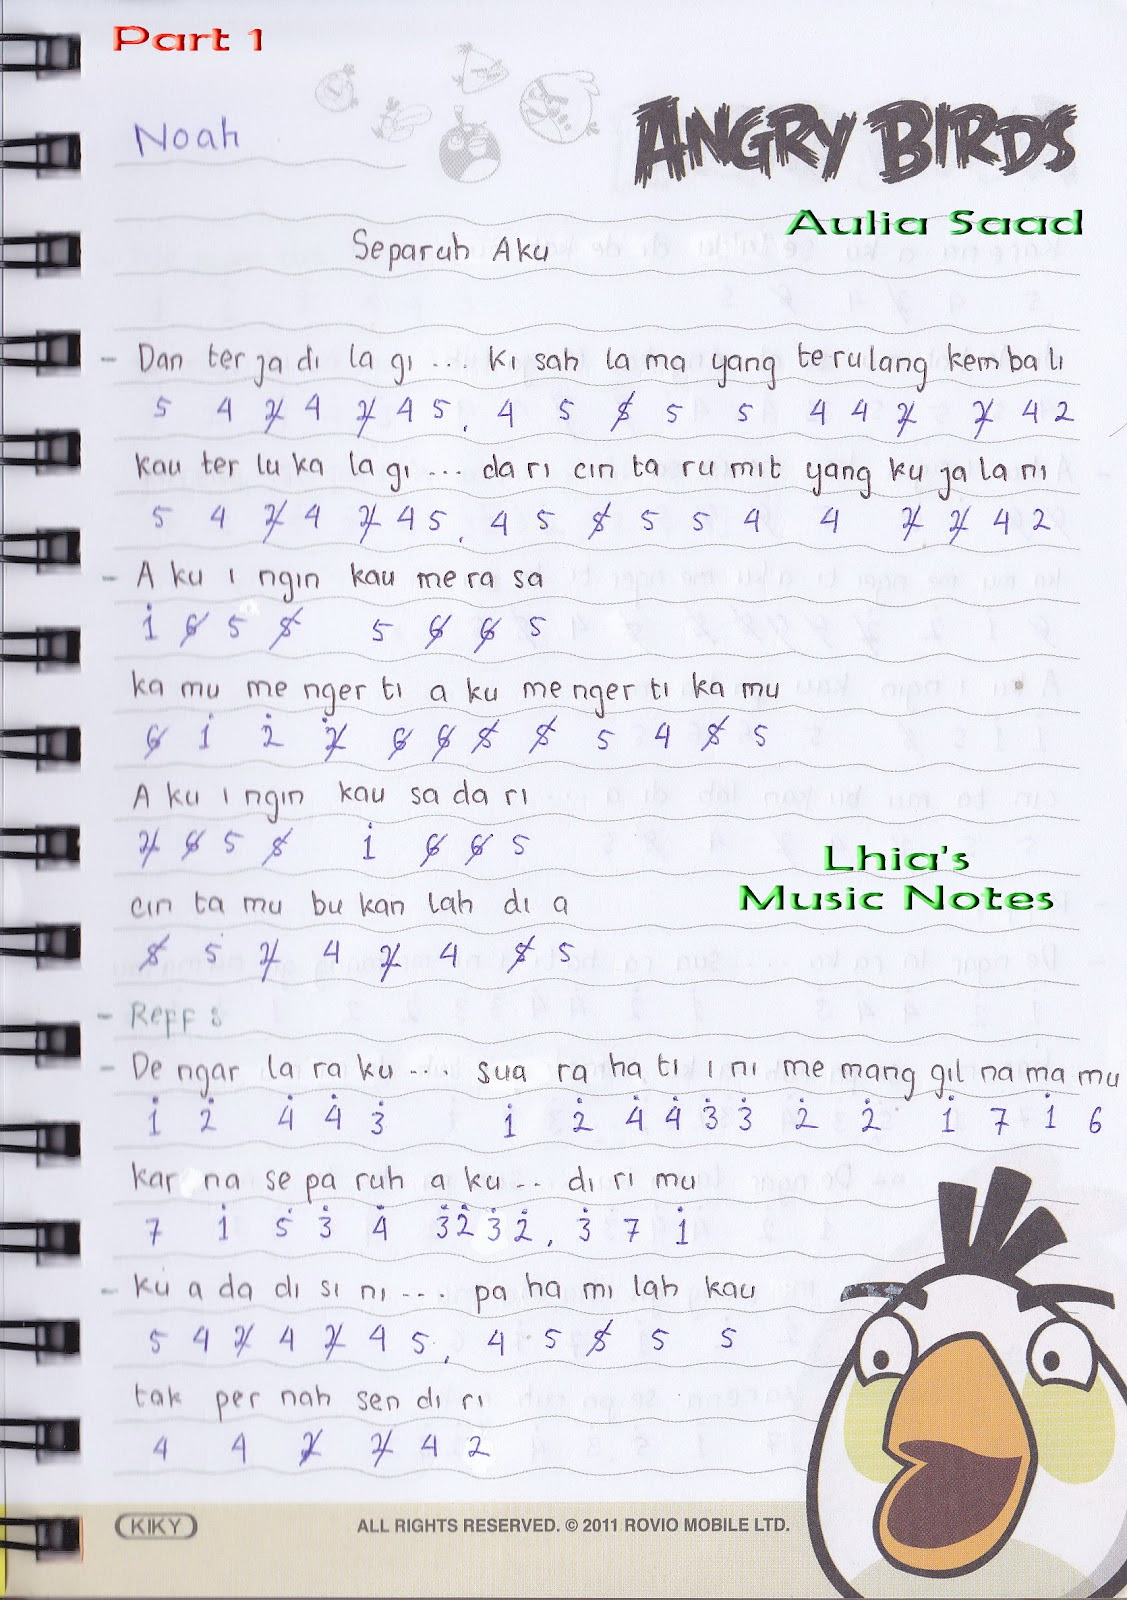 Part 1
Noah
ANGRY BIRDS
Aulia Saad
Separuh Aku
- Dan ter ja di la gi ... ki sah la ma yang te rulang kem ba li
5 4 2̸ 4 2̸ 4 5 . 4 5 5̸ 5 5 4 4 2̸ 2̸ 4 2
Kau ter lu ka la gi ... da ri cin ta ru mit yang ku ja la ni
5 4 2̸ 4 2̸ 4 5 . 4 5 5̸ 5 5 4 4 2̸ 2̸ 4 2
- A ku i ngin kau me ra sa
1̇ 6̸ 5 5̸ 5 6̸ 6̸ 5
ka mu me nger ti a ku me nger ti ka mu
6̸ 1̇ 2̇ 2̸̇ 6̸ 6̸ 5̸ 5̸ 5 4 5̸ 5
A ku i ngin kau sa da ri
2̸ 6̸ 5 5̸ 1̇ 6̸ 6̸ 5
Lhia's
Music Notes
cin ta mu bu kan lah di a
5̸ 5 2̸ 4 2̸ 4 5̸ 5
- Reff :
- De ngar la ra ku .... sua ra ha ti i ni me mang gil na ma mu
1̇ 2̇ 4̇ 4̇ 3̇ 1̇ 2̇ 4̇ 4̇ 3̇ 3̇ 2̇ 2̇ 1̇ 7 1̇ 6
kar na se pa ruh a ku .. di ri mu
7 1̇ 5̇ 3̇ 4̇ 3̇ 2̇ 3̇ 2̇ . 3̇ 7 1̇
- Ku a da di si ni ... pa ha mi lah kau
5 4 2̸ 4 2̸ 4 5 . 4 5 5̸ 5 5
tak per nah sen di ri
4 4 2̸ 2̸ 4 2
KIKY
ALL RIGHTS RESERVED. © 2011 ROVIO MOBILE LTD.